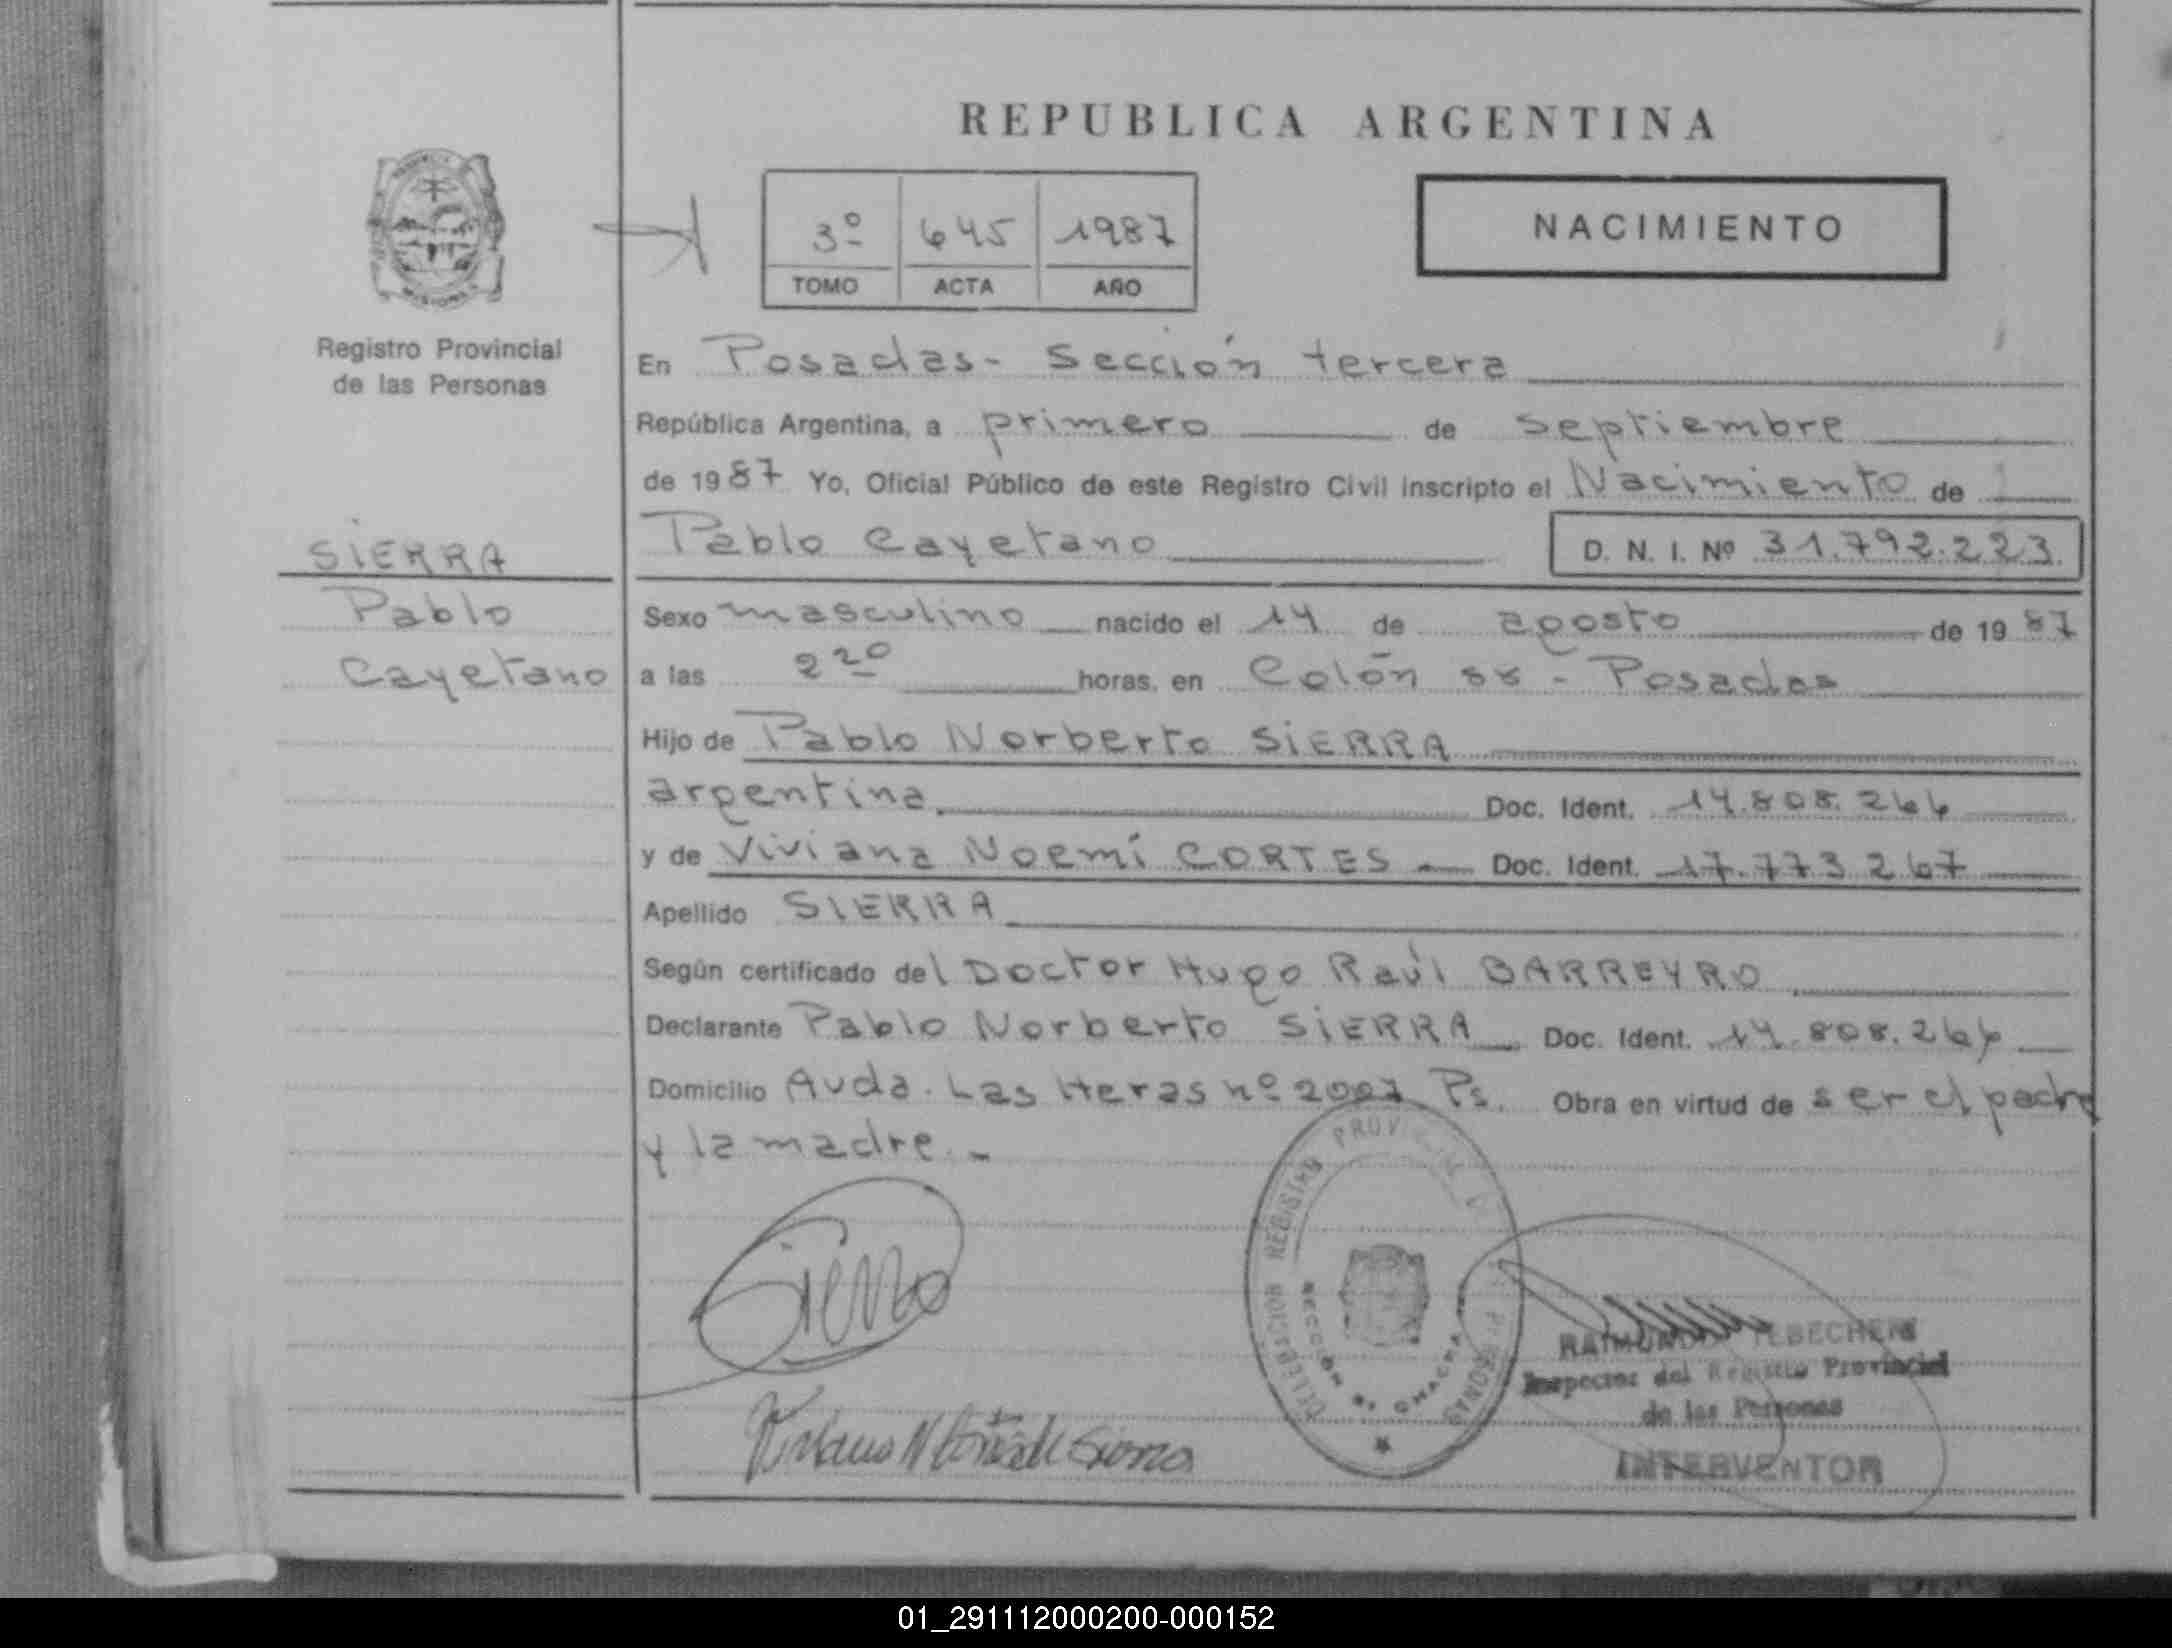 REPUBLICA ARGENTINA
3º 645 1987
TOMO ACTA AÑO
NACIMIENTO
MISIONES
Registro Provincial
de las Personas
SIERRA
Pablo
Cayetano
En Posadas - Sección tercera
República Argentina, a primero de septiembre
de 1987 Yo, Oficial Público de este Registro Civil inscripto el Nacimiento de
Pablo Cayetano D. N. I. Nº 31.792.223.
Sexo masculino nacido el 14 de agosto de 1987
a las 2 20 horas, en Colón - Posadas
Hijo de Pablo Norberto SIERRA
argentina. Doc. Ident. 14.808.266
y de Viviana Noemí CORTES Doc. Ident. 17.773.267
Apellido SIERRA
Según certificado del Doctor Hugo Raúl BARREYRO
Declarante Pablo Norberto SIERRA Doc. Ident. 14.808.266
Domicilio Avda. Las Heras nº Ps. Obra en virtud de ser el padre
y la madre. -
Sierra
de Sierra
DELEGACION REGISTRO
SECCION CHACRA
RAIMUNDO
Inspector del Registro Provincial
de las Personas
INTERVENTOR
01_291112000200-000152